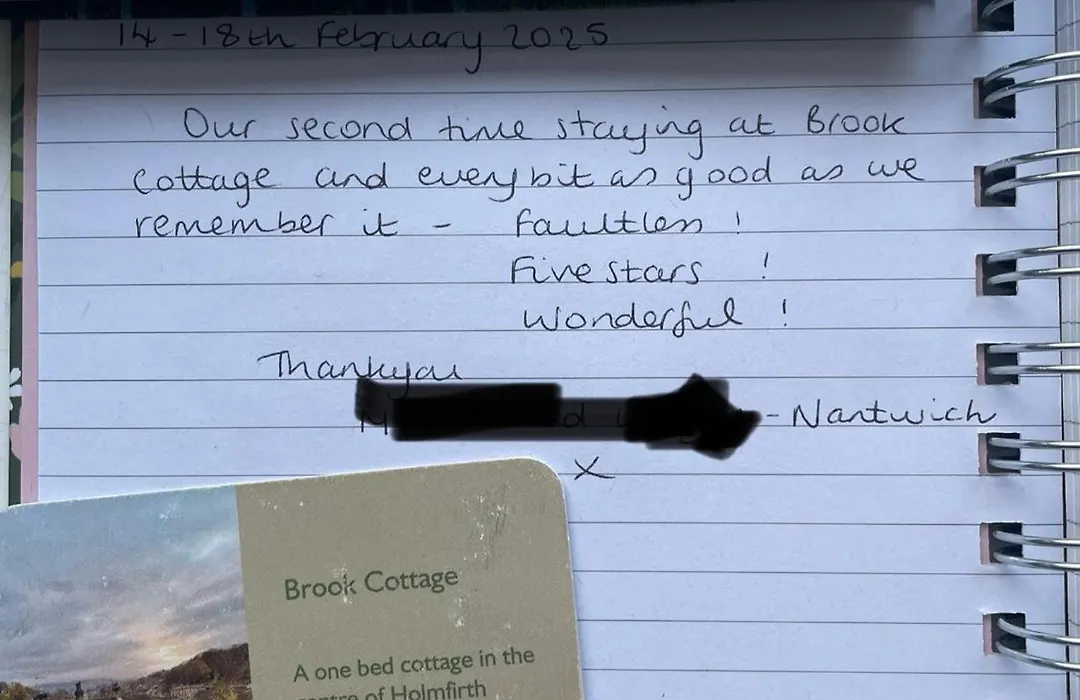 14 - 18th February 2025
Our second time staying at Brook
cottage and every bit as good as we
remember it - Faultless !
Five stars !
Wonderful !
Thankyou
- Nantwich
x
Brook Cottage
A one bed cottage in the
centre of Holmfirth